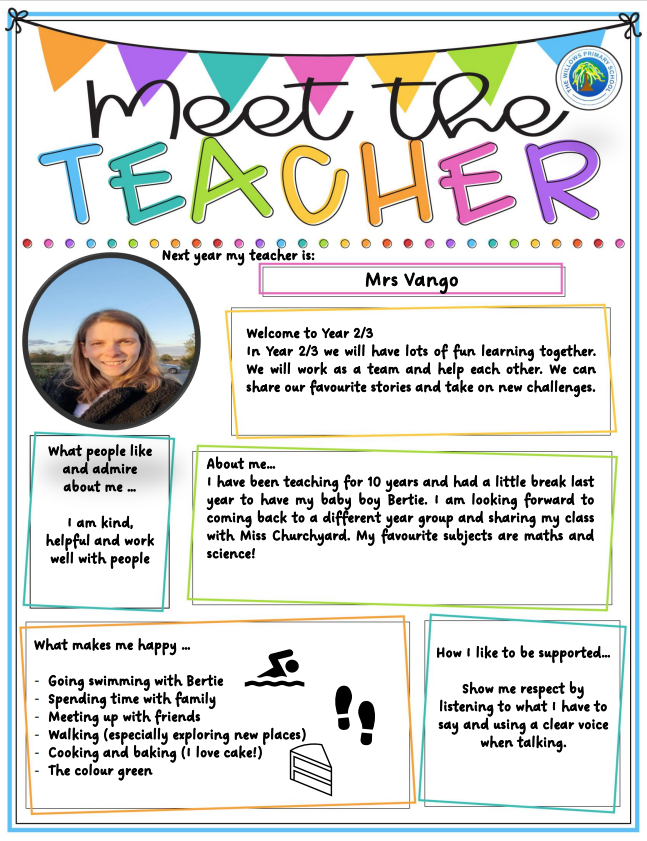 THE WILLOWS PRIMARY SCHOOL
Meet the
TEACHER
Next year my teacher is:
Mrs Vango
Welcome to Year 2/3
In Year 2/3 we will have lots of fun learning together.
We will work as a team and help each other. We can
share our favourite stories and take on new challenges.
What people like
and admire
about me ...
I am kind,
helpful and work
well with people
About me...
I have been teaching for 10 years and had a little break last
year to have my baby boy Bertie. I am looking forward to
coming back to a different year group and sharing my class
with Miss Churchyard. My favourite subjects are maths and
science!
What makes me happy ...
- Going swimming with Bertie
- Spending time with family
- Meeting up with friends
- Walking (especially exploring new places)
- Cooking and baking (I love cake!)
- The colour green
How I like to be supported...
Show me respect by
listening to what I have to
say and using a clear voice
when talking.